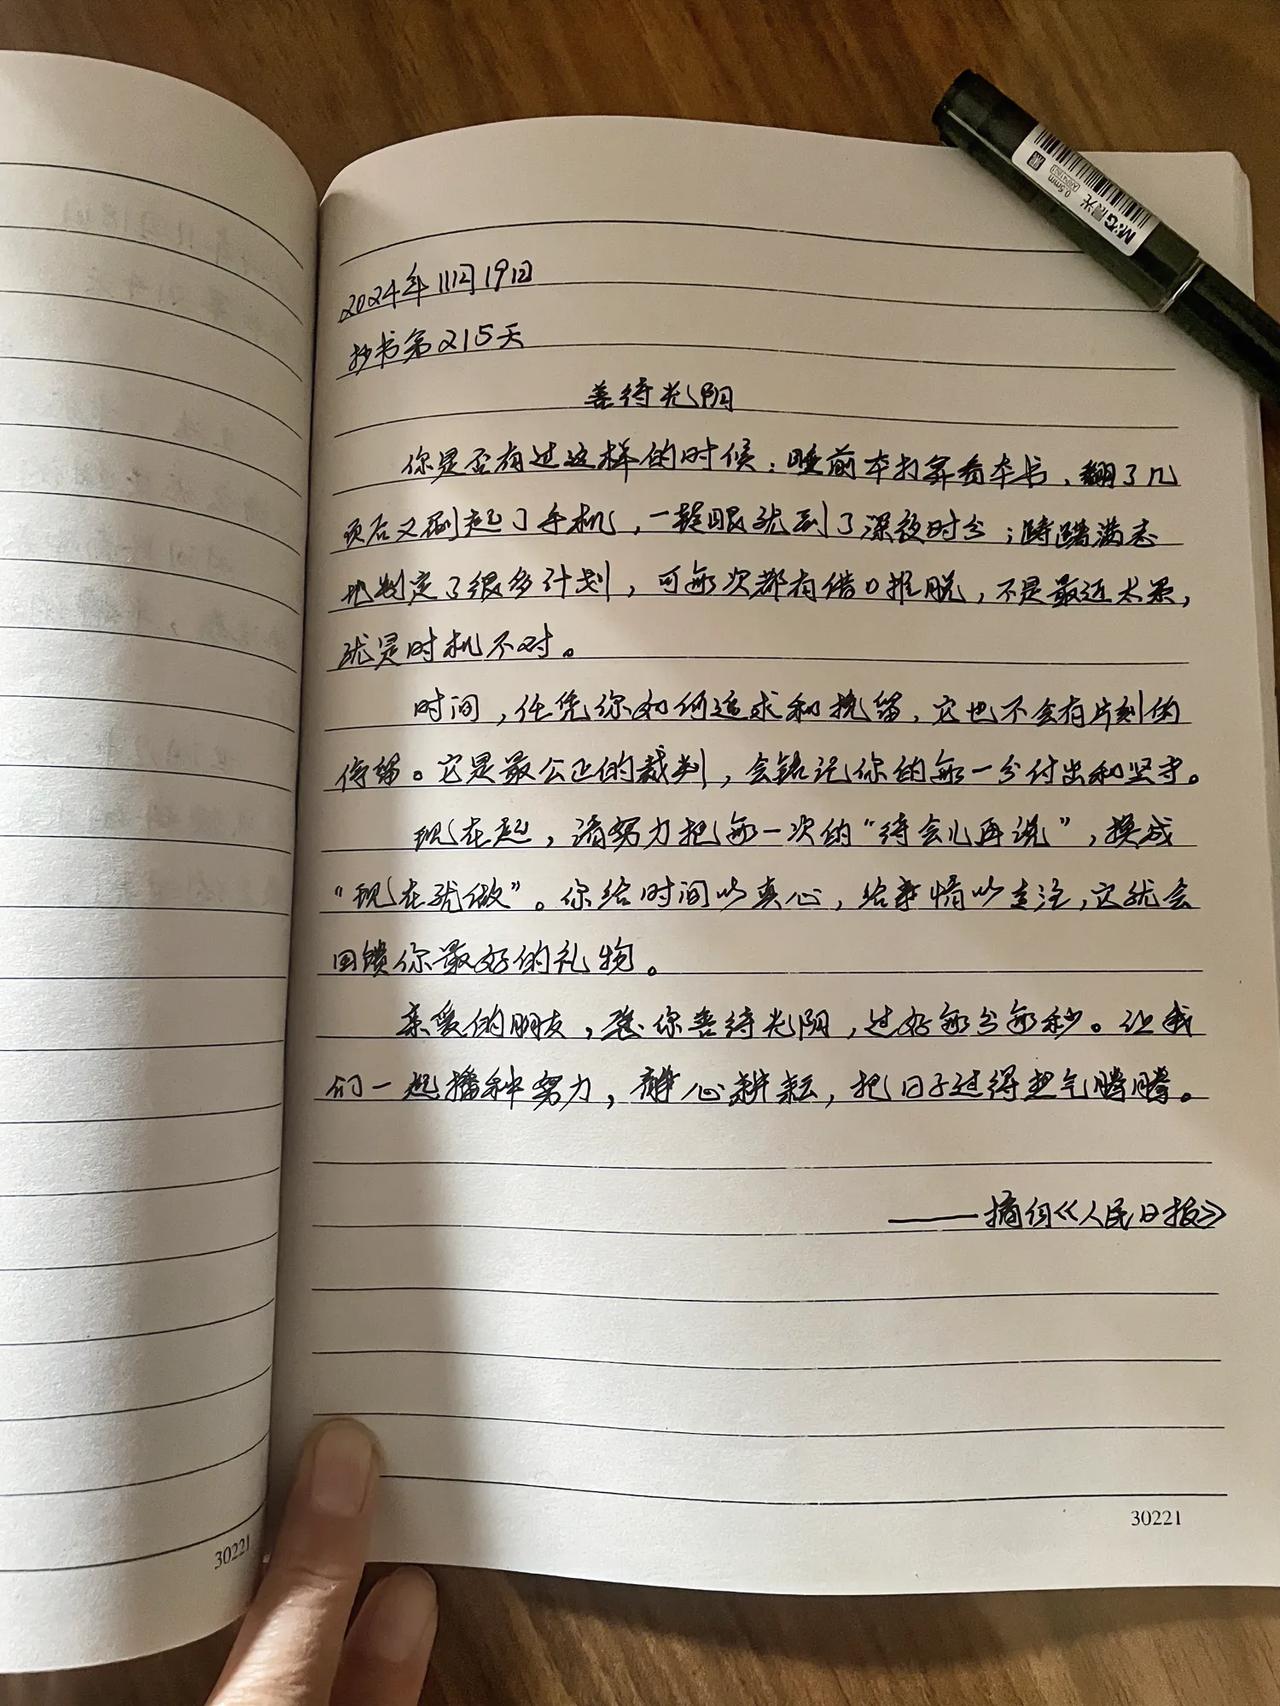 2024年11月19日
抄书第215天
善待光阴
你是否有过这样的时候：睡前本打算看本书，翻了几
页后又刷起了手机，一睁眼就到了深夜时分；踌躇满志
地制定了很多计划，可每次都有借口推脱，不是最近太累，
就是时机不对。
时间，任凭你如何追求和挽留，它也不会有片刻的
停留。它是最公正的裁判，会铭记你的每一分付出和坚守。
现在起，请努力把每一次的“待会儿再说”，换成
“现在就做”。你给时间以真心，给事情以专注，它就会
回馈你最好的礼物。
亲爱的朋友，愿你善待光阴，过好每分每秒。让我
们一起播种努力，静心耕耘，把日子过得热气腾腾。
——摘自《人民日报》
30221
30221
M&G 晨光
0.5mm
黑